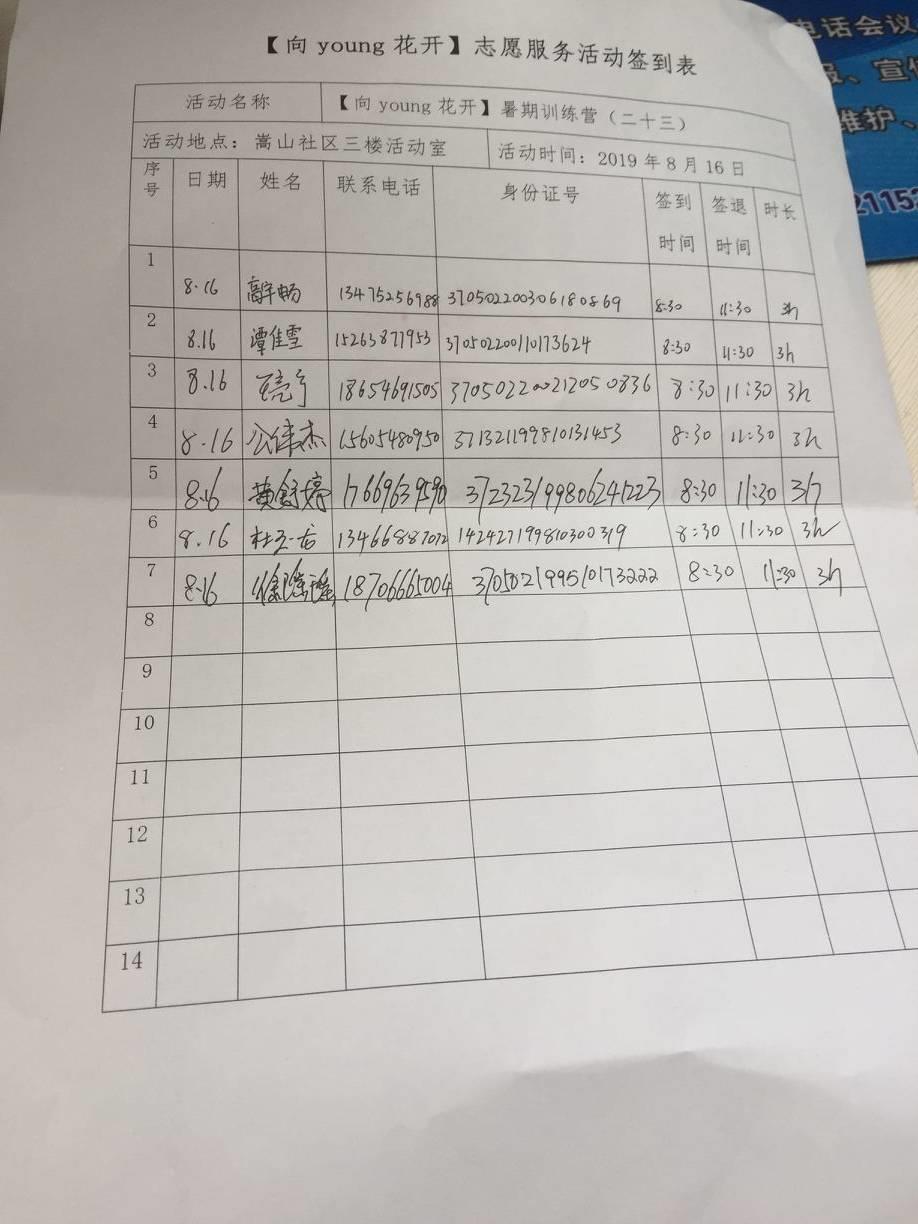 【向 young 花开】志愿服务活动签到表
活动名称 【向 young 花开】暑期训练营（二十三）
活动地点：嵩山社区三楼活动室 活动时间：2019 年 8 月 16 日
序号 日期 姓名 联系电话 身份证号 签到时间 签退时间 时长
1 8.16 高宇畅 13475256988 370502200306180869 8:30 11:30 3h
2 8.16 谭佳雪 15263877953 370502200110173624 8:30 11:30 3h
3 8.16 18654691505 370502200212050836 8:30 11:30 3h
4 8.16 公伟杰 15605480950 371321199810131453 8:30 11:30 3h
5 8.16 黄舒婷 17669639590 372323199806241223 8:30 11:30 3h
6 8.16 13466887072 142427199810300319 8:30 11:30 3h
7 8.16 18706665004 370502199510173222 8:30 11:30 3h
8
9
10
11
12
13
14
电话会议
、宣传
维护、